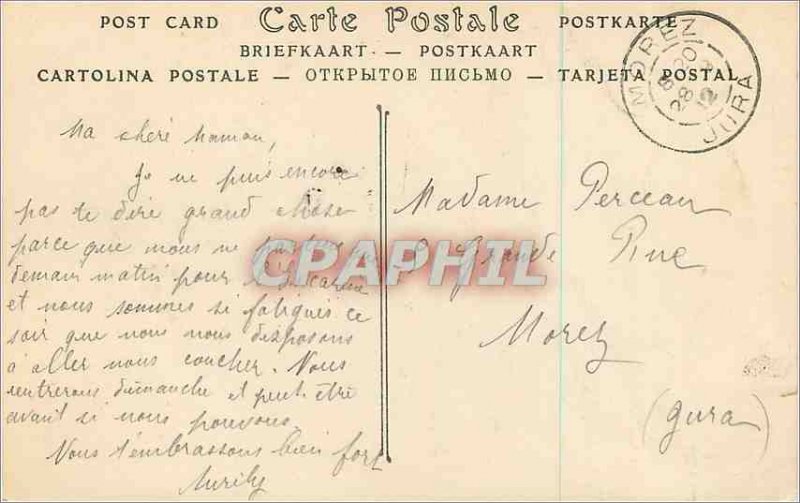 POST CARD Carte Postale POSTKARTE
BRIEFKAART — POSTKAART
CARTOLINA POSTALE — ОТКРЫТОЕ ПИСЬМО — TARJETA POSTAL
MOREZ
JURA
Ma chère Maman,
Je ne puis encore
pas te dire grand chose
parce que nous ne
demain matin pour
et nous sommes si fatigués ce
soir que nous nous disposons
à aller nous coucher. Nous
rentrerons dimanche et peut-être
avant si nous pouvons.
Nous t'embrassons bien fort
Madame Perceau
Grande Rue
Morez
(Jura)
CPAPHIL